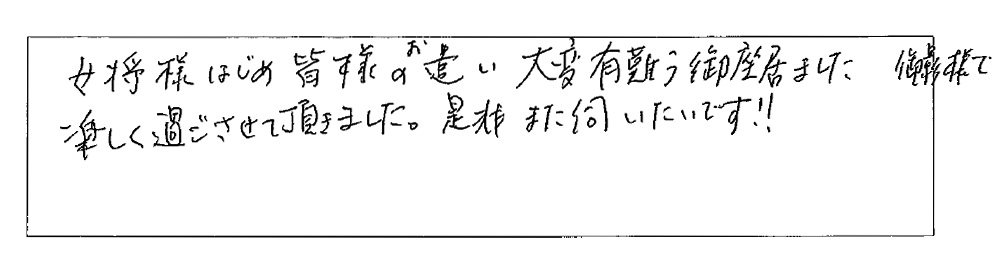 女将様はじめ皆様のお遣い大変有難う御座居ました 御影様で
楽しく過ごさせて頂きました。是非また伺いたいです!!